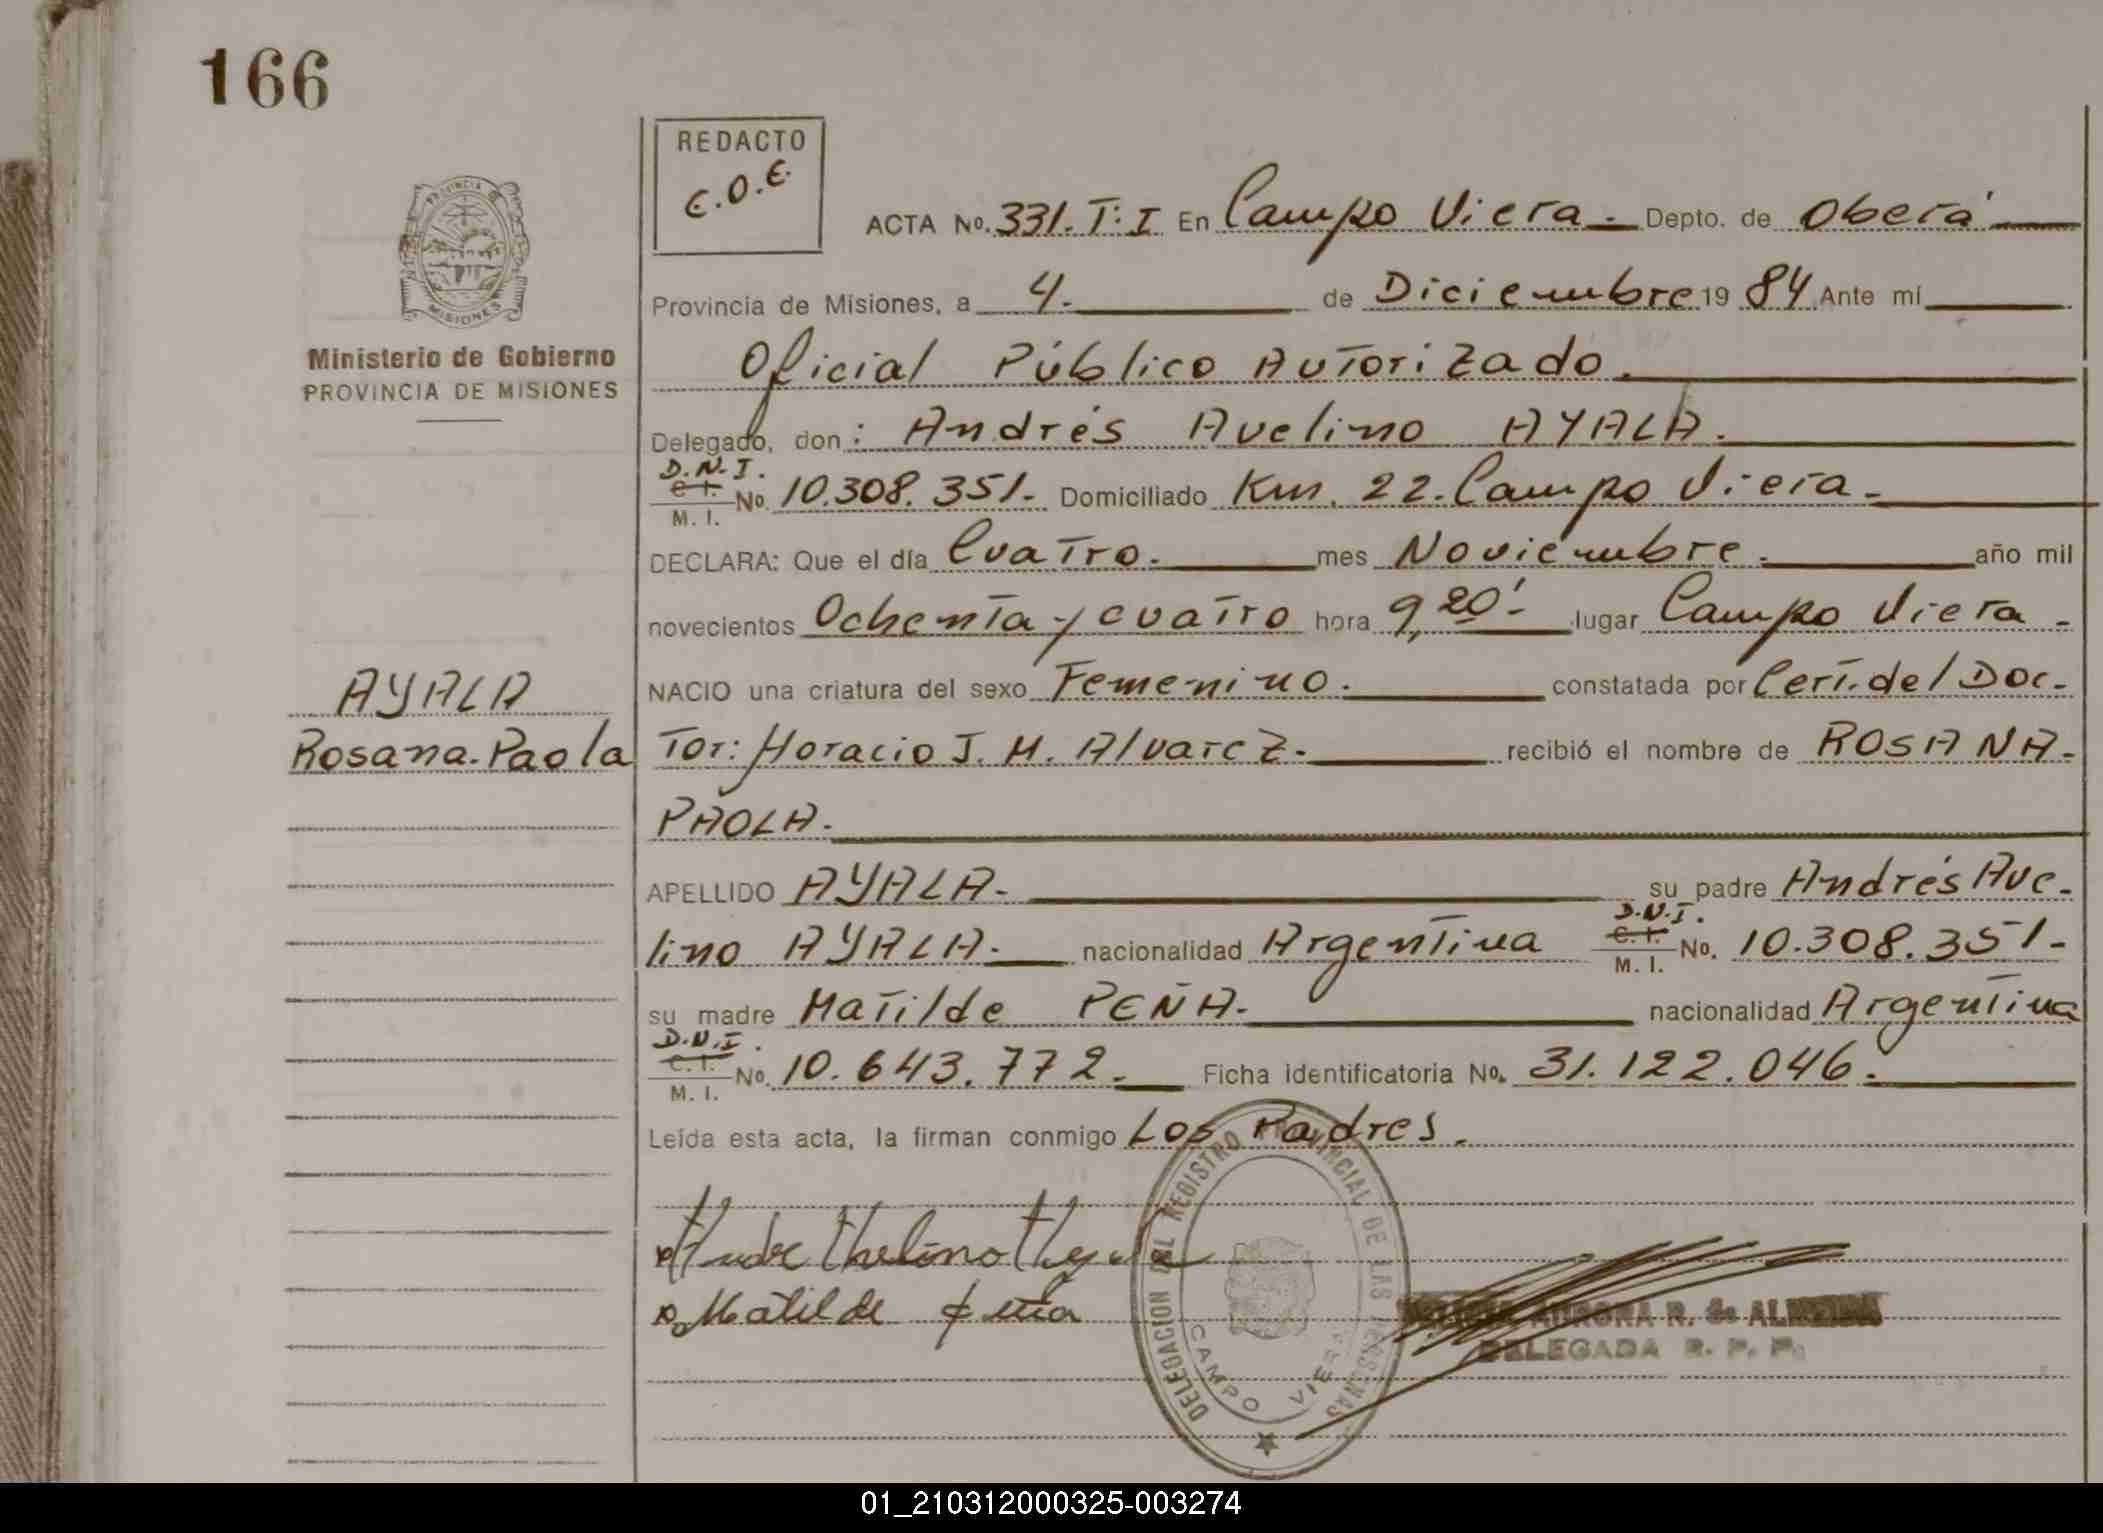 166
REDACTO
C.O.E.
ACTA No. 331. T: I En Campo Viera. Depto. de Oberá
Provincia de Misiones, a 4. de Diciembre 19 84 Ante mí
Oficial Público Autorizado.
Delegado, don: Andrés Avelino AYALA.
D.N.I.
C. I.
M. I.
No. 10.308.351. Domiciliado Km. 22. Campo Viera.
DECLARA: Que el día Cuatro. mes Noviembre. año mil
novecientos Ochenta y cuatro hora 9,20'- lugar Campo Viera -
NACIO una criatura del sexo Femenino. constatada por Cert. del Doc-
tor: Horacio J. M. Alvarez. recibió el nombre de ROSANA-
PAOLA.
APELLIDO AYALA. su padre Andrés Ave-
D.N.I.
C. I.
M. I.
lino AYALA. nacionalidad Argentina No. 10.308.351-
su madre Matilde PEÑA. nacionalidad Argentina
D.N.I.
C. I.
M. I.
No. 10.643.772. Ficha identificatoria No. 31.122.046.
Leída esta acta, la firman conmigo Los Padres.
Matilde Peña
PROVINCIA DE
MISIONES
Ministerio de Gobierno
PROVINCIA DE MISIONES
AYALA
Rosana. Paola
DELEGACION DEL REGISTRO PROVINCIAL DE LAS PERSONAS
CAMPO VIERA
AURORA R. de ALMEIDA
DELEGADA R. P. P.
01_210312000325-003274